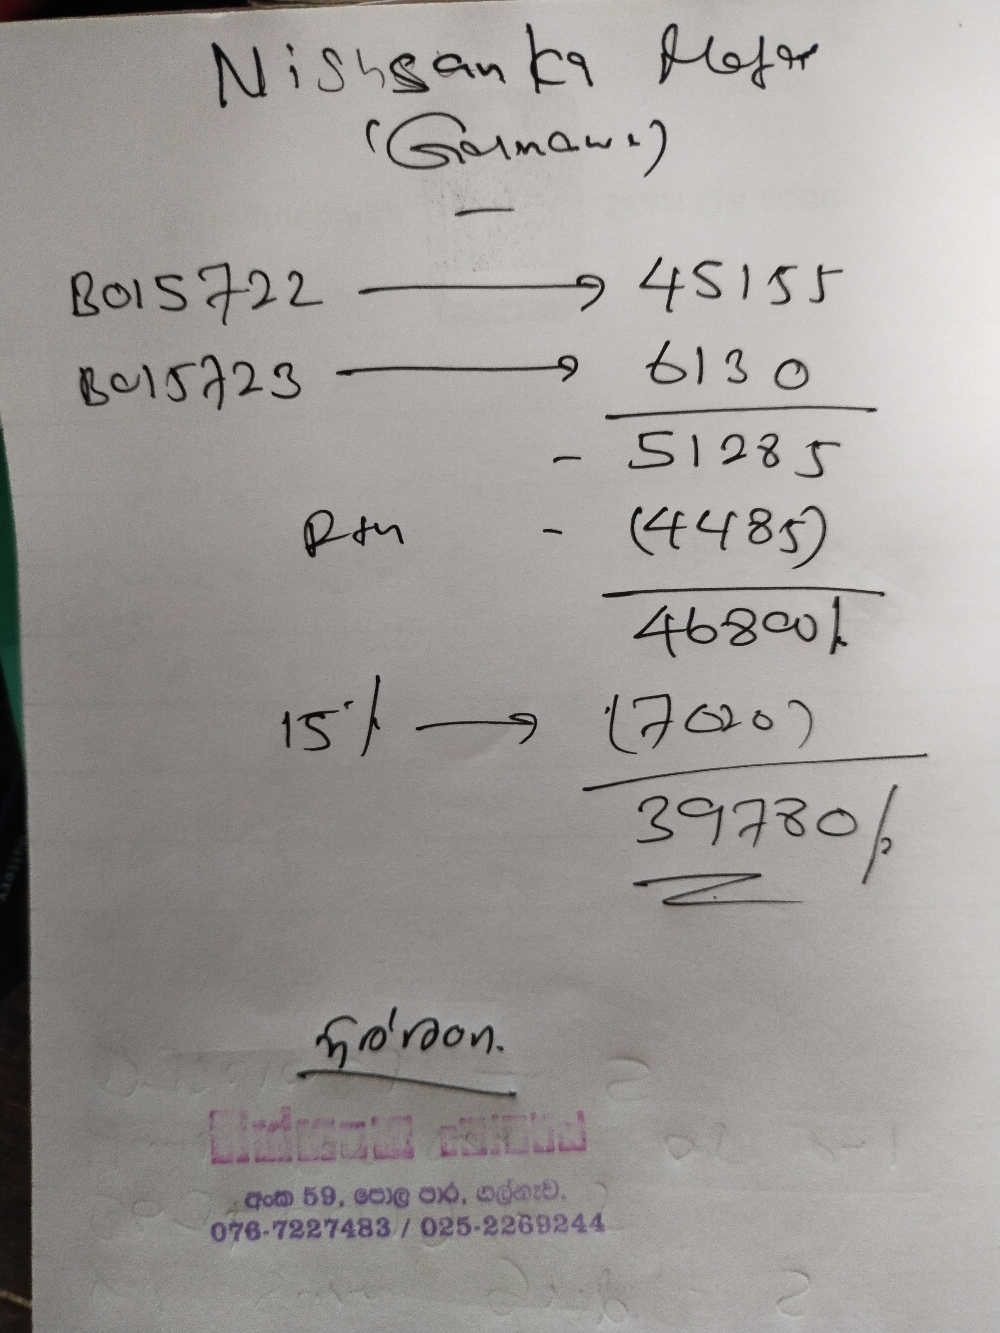 Nishsanka Motor
(Galnawa)
B015722 → 45155
B015723 → 6130
- 51285
Rtn - (4485)
46800/-
15% → (7020)
39780/-
නිශ්ශංක මෝටර්ස්
අංක 59, පොල පාර, ගල්නෑව.
076-7227483 / 025-2269244